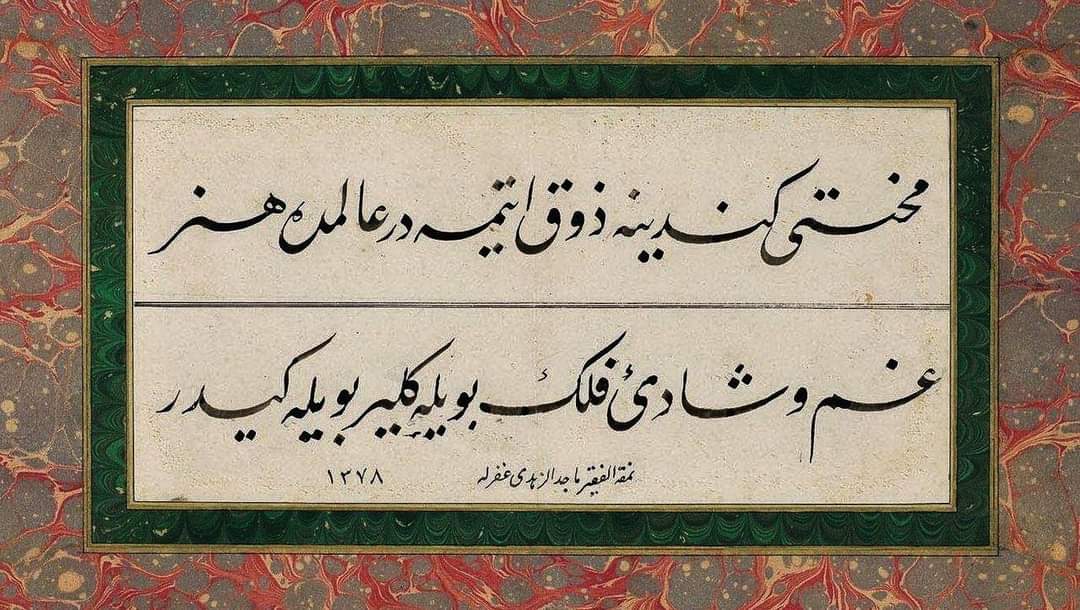 محنتی كندینه ذوق ایتمه در عالمده هنر
غم و شادئ فلك بویله كلیر بویله كیدر
نمقه الفقیر ماجد الزهدی غفرله
١٣٧٨